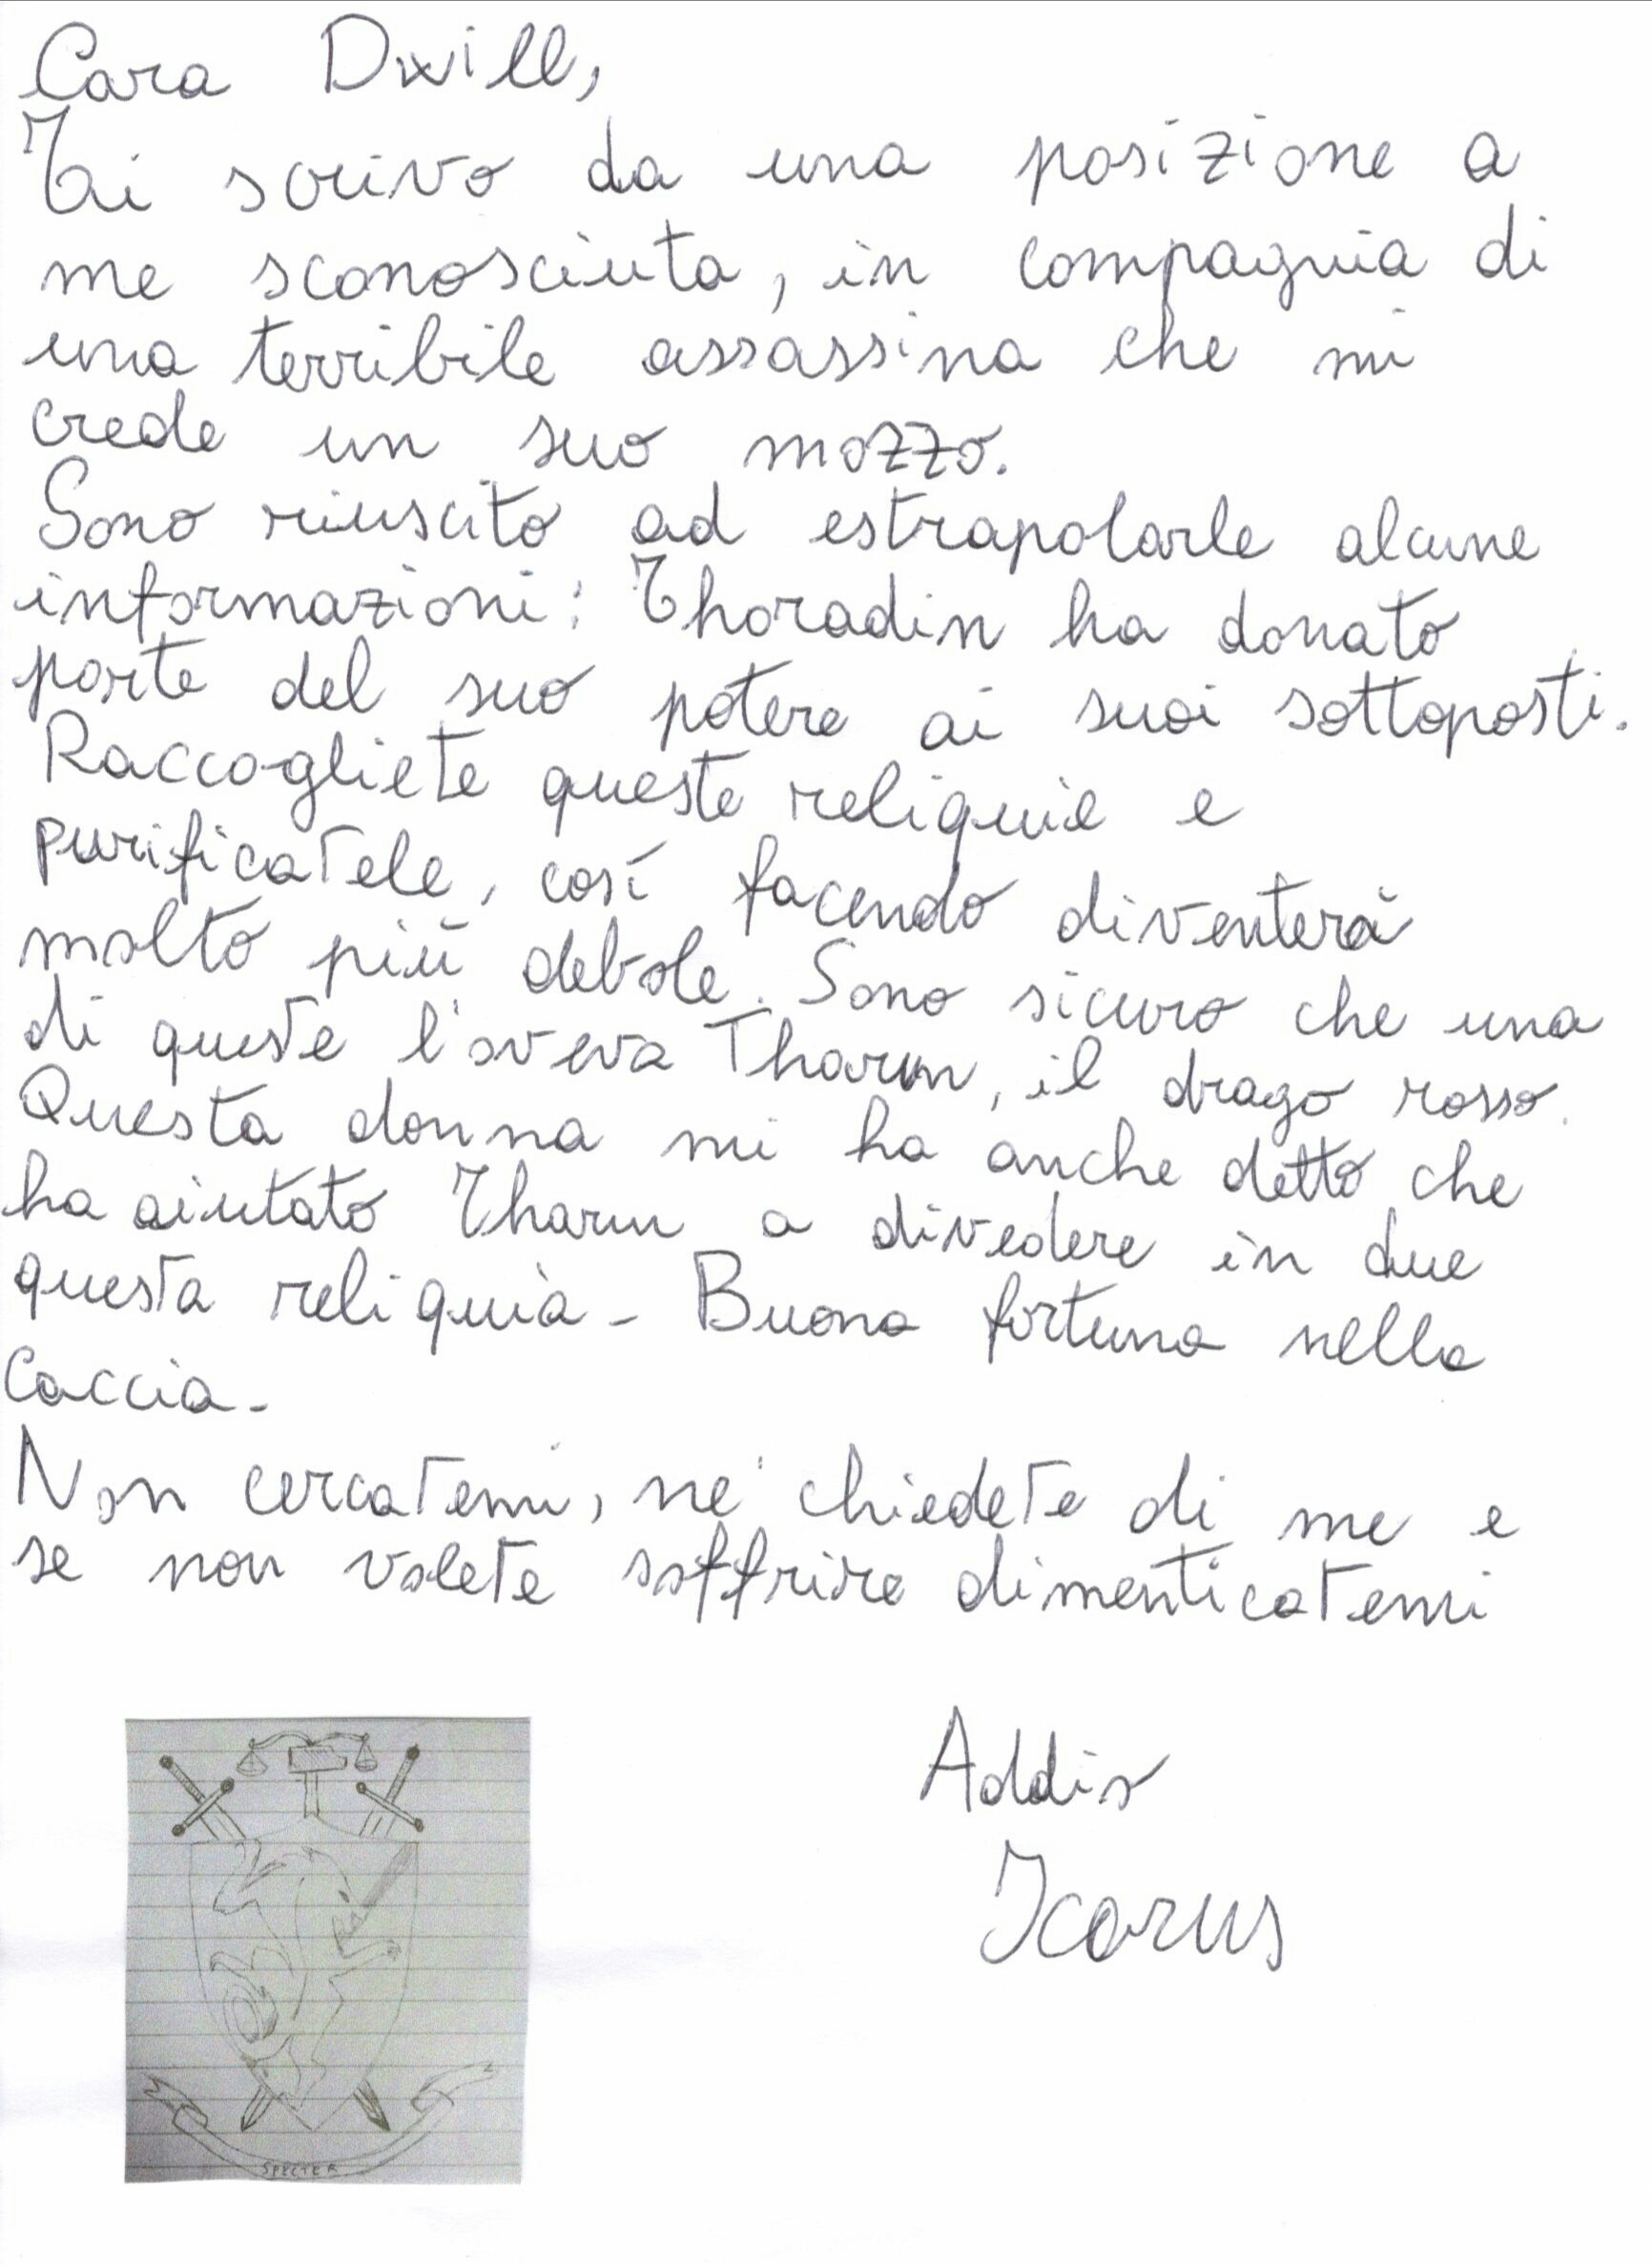 Cara Dwill,
Ti scrivo da una posizione a
me sconosciuta, in compagnia di
una terribile assassina che mi
crede un suo mozzo.
Sono riuscito ad estrapolarle alcune
informazioni: Thoradin ha donato
parte del suo potere ai suoi sottoposti.
Raccogliete queste reliquie e
purificatele, così facendo diventerà
molto più debole. Sono sicuro che una
di queste l'aveva Tharun, il drago rosso.
Questa donna mi ha anche detto che
ha aiutato Tharun a divedere in due
questa reliquia - Buona fortuna nella
Caccia -
Non cercatemi, né chiedete di me e
se non volete soffrire dimenticatemi
Addio
Icarus
SPECTER